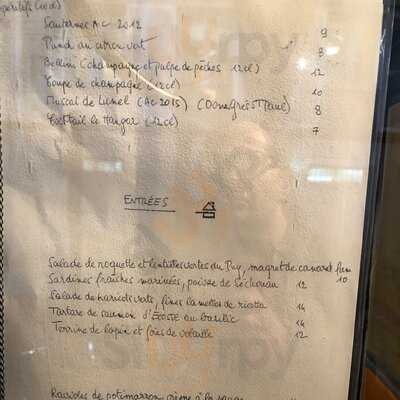 Apéritifs (10cl)
Sauternes A.C 2012 9
Punch au citron vert 8
Bellini (champagne et pulpe de pêches 12cl) 12
Coupe de champagne (12cl) 10
Muscat de Lunel (AC 2015) (Domaine Grès St Paul) 8
Cocktail le Hangar (12cl) 7
ENTRÉES
Salade de roquette et lentilles vertes du Puy, magret de canard fumé 10
Sardines fraîches marinées, poivre de Sechouan 12
Salade de haricots verts, fines lamelles de ricotta 14
Tartare de saumon d'ÉCOSSE au basilic 14
Terrine de lapin et foies de volaille 12
Ravioles de potimarron crème à la sauge